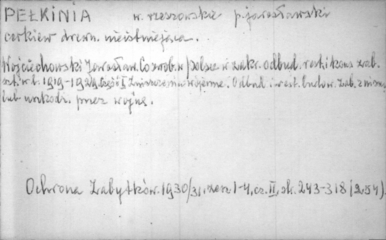 PEŁKINIA w. rzeszowskie p. jarosławski
cerkiew drewn. nieistniejąca.
Wojciechowski Jarosław. Co zrob. w Polsce w zakr. odbud. rest. i kons. zab.
szt. w l. 1919-1929. Część I Zniszczenia wojenne. Odbud. i rest. budow. zab. zniszcz.
lub uszkodz. przez wojnę.
Ochrona Zabytków. 1930/31, zesz. 1-4, cz. II, str. 243-318 (254).